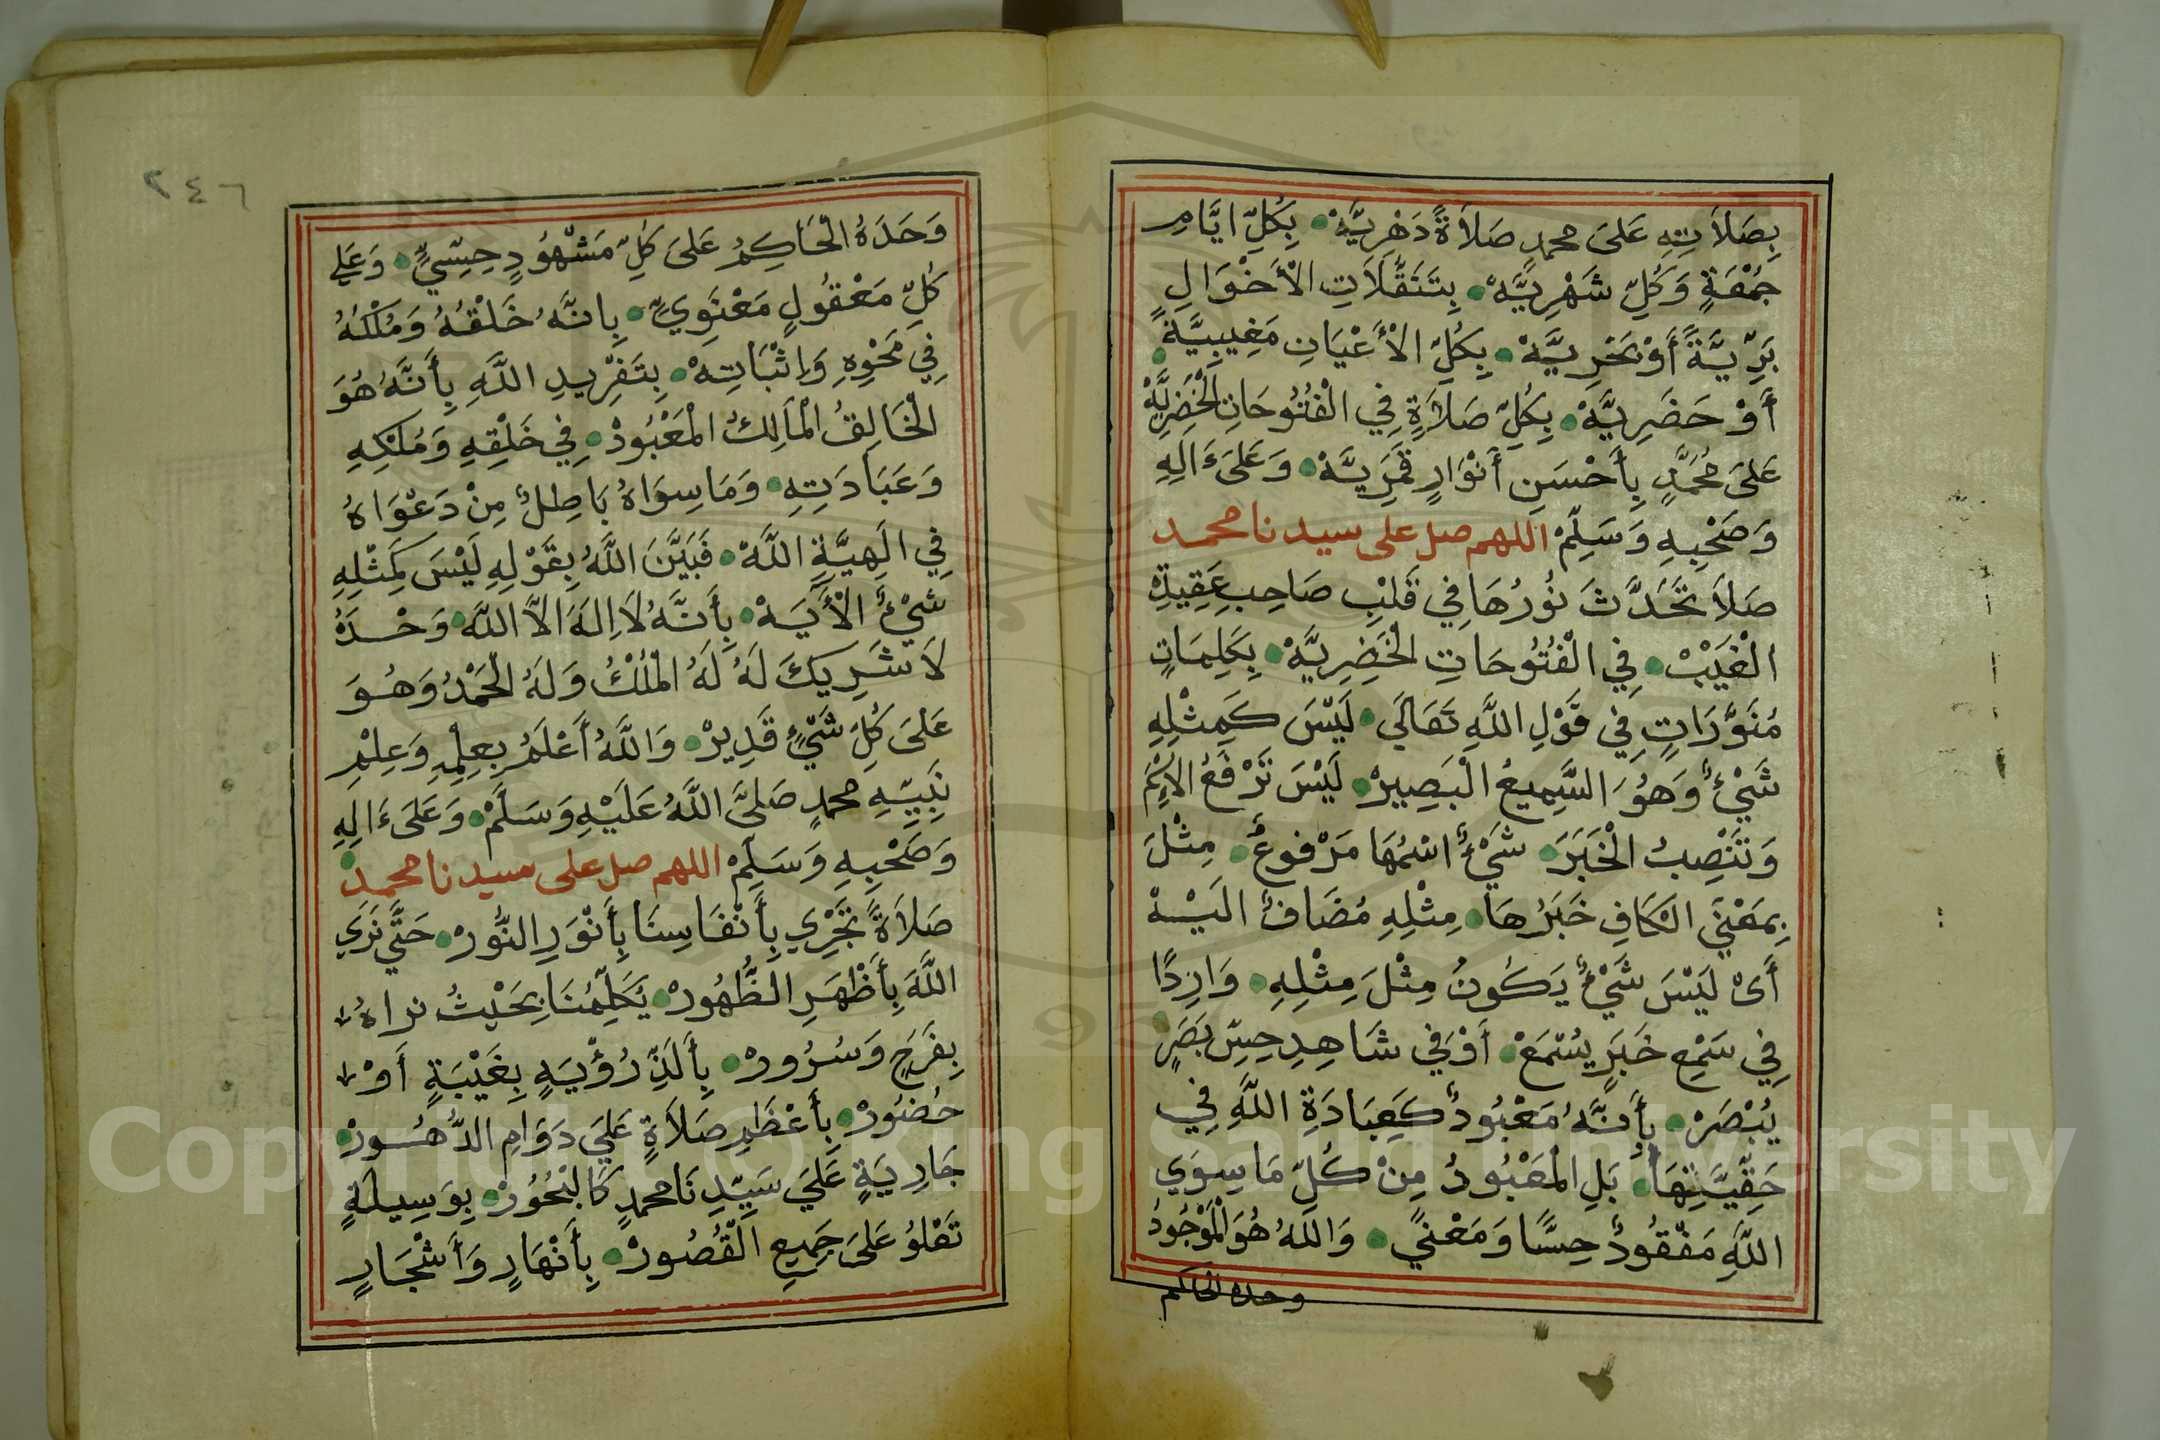 بِصَلاَتِهِ عَلَىَ محمدٍ صَلاَةً دَهْرِيَّهْ بِكُلِّ ايَّامِ
جُمْعَةٍ وَكُلِّ شَهْرِيَّهْ بِتَنَقُّلَاتِ الْأَحْوَالِ
بَرِّيَّةً أَوْ بَحْرِيَّهْ بِكُلِّ الْأَعْيَانِ مَغِيبِيَّةً
أَوْ حَضَرِيَّهْ بِكُلِّ صَلَاةٍ فِي الْفُتُوحَاتِ الْخَضِرِيَّهْ
عَلَىَ مُحَمَّدٍ بِأَحْسَنِ أَنْوَارٍ قَمَرِيَّهْ وَعَلَىَ ءَالِهِ
وَصَحْبِهِ وَسَلِّمْ اللهم صل على سيدنا محمد
صَلاَ تَحَدَّثَ نُورُهَا فِي قَلْبِ صَاحِبِ عَقِيدَةِ
الْغَيْبْ فِي الْفُتُوحَاتِ الْخَضِرِيَّهْ بِكَلِمَاتٍ
مُنَوَّرَاتٍ فِي قَوْلِ اللَّهِ تَعَالَي لَيْسَ كَمِثْلِهِ
شَيْءٌ وَهُوَ السَّمِيعُ الْبَصِيرْ لَيْسَ تَرْفَعُ الْاِسْمَ
وَتَنْصِبُ الْخَبَرَ شَيْءٌ اسْمُهَا مَرْفوعٌ مِثْلَ
بِمَعْنَي الْكَافِ خَبَرُهَا مِثْلِهِ مُضَافٌ الَيْهْ
أَىْ لَيْسَ شَيْءٌ يَكُونُ مِثْلَ مِثْلِهِ وَارِدًا
فِي سَمْعِ خَبَرٍ يُسْمَعْ أَوْ فِي شَاهِدِ حِسِّ بَصَرٍ
يُبْصَرْ بِأَنَّهُ مَعْبُودٌ كَعِبَادَةِ اللَّهِ فِي
حَقِّيَّتِهَا بَلِ الْمَعْبُودُ مِنْ كُلِّ مَا سِوَي
اللَّهِ مَفْقُودٌ حِسًّا وَمَعْنيً وَاللهُ هُوَ الْمَوْجُودُ
وحده الحاكم
٢٤٦
وَحَدَهُ الْحَاكِمُ عَلىَ كُلِّ مَشْهُودٍ حِسِّيٍّ وَعَلي
كُلِّ مَعْقُولٍ مَعْنَوِيٍّ بِانَّهُ خَلْقُهُ وَمُلْكُهُ
فِي مَحْوِهِ وَاِثْبَاتِهْ بِتَفْرِيدِ اللَّهِ بِأَنَّهُ هُوَ
الْخَالِقُ الْمَالِكُ الْمَعْبُودْ فِي خَلْقِهِ وَمُلْكِهِ
وَعَبَادَتِهِ وَمَا سِوَاهُ بَاطِلٌ مِنْ دَعْوَاهُ
فِي الَهِيَّةِ اللَّهْ فَبَيَّنَ اللَّهُ بِقَوْلِهِ لَيْسَ كَمِثْلِهِ
شَيْءٌ الْأَيَهْ بِأَنَّهُ لَا اِلَهَ اِلاَّ اللَّه وَحْدَهُ
لَا شَرِيكَ لَهُ لَهُ الْمُلْكُ وَلَهُ الْحَمْدُ وَهُوَ
عَلَىَ كُلِّ شَيْءٍ قَدِيرْ وَاللَّهُ أَعْلَمُ بِعِلْمِهِ وَعِلْمِ
نَبِيِّهِ محمدٍ صَلىَّ اللَّهُ عَلَيْهِ وَسَلَّمْ وَعَلَىَ ءَالِهِ
وَصَحْبِهِ وَسَلِّمْ اللهم صل على سيدنا محمد
صَلاَةً تَجْرِي بِأَنْفَاسِنَا بِأَنْوَرِ النُّورْ حَتَّي نَرَي
اللَّهَ بِأَظْهَرِ الظُّهُورْ يُكَلِّمُنَا بِحَيْثُ نراهُ
بِفَرَحٍ وَسُرُورْ بِأَلَذِّ رُؤْيَةٍ بِغَيْبَةٍ أَوْ
حُضُورْ بِأَعْظَمِ صَلَاةٍ عَلَيَ دَوَامِ الدُّهُورْ
جَارِيَةٍ عَلَيَ سَيِّدِنَا محمدٍ كَالْبُحُورْ بِوَسِيلَةٍ
تَعْلُو عَلىَ جَمِيعِ الْقُصُورْ بِأَنْهَارٍ وَأَشْجَارٍ
Copyright © King Saud University